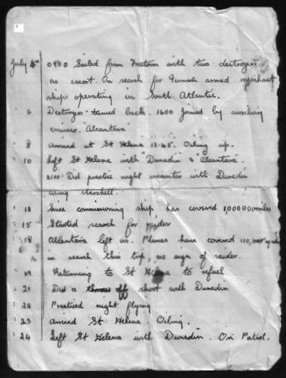 July 4th 0900 Sailed from Freetown with two destroyers
as escort. In search for German armed merchant
ships operating in South Atlantic.
6 Destroyers turned back. 1600 Joined by auxiliary
cruiser. Alcantara
8 arrived at St Helena Oiling up.
10 Left St Helena with Dunedin & Alcantara.
2110 Did practice night encounter with Dunedin
using starshell.
12 Since commissioning ship has covered 100000 miles
15 Started search for raider
18 Alcantara left us. Planes have covered 110,000
in search this trip, no sign of raider
19 Returning to St Helena to refuel
21 Did a throw off shoot with Dunedin
22 Practiced night flying
23 arrived St Helena Oiling.
24 Left St Helena with Dunedin. On Patrol.